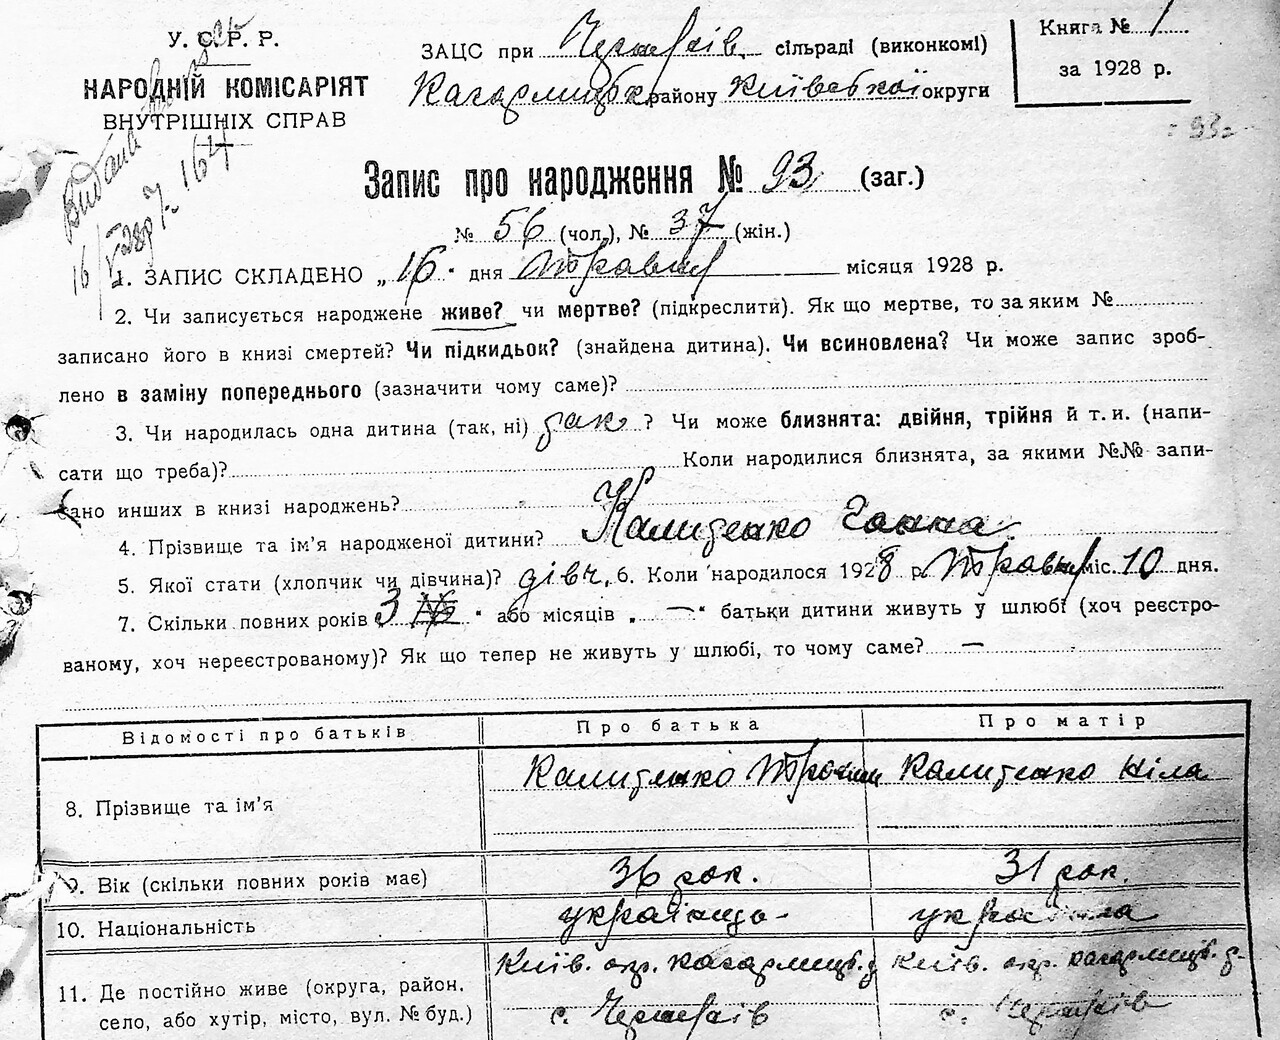 У. С. Р. Р.
НАРОДНІЙ КОМІСАРІЯТ
ВНУТРІШНІХ СПРАВ
Видана
164
16/
ЗАЦС при сільраді (виконкомі)
Кагарлицьк. району Київської округи
Книга № 1
за 1928 р.
93
Запис про народження № 93 (заг.)
№ 56 (чол.), № 37 (жін.)
1. ЗАПИС СКЛАДЕНО „16" дня Травня місяця 1928 р.
2. Чи записується народжене живе? чи мертве? (підкреслити). Як що мертве, то за яким №
записано його в книзі смертей? Чи підкидьок? (знайдена дитина). Чи всиновлена? Чи може запис зроб-
лено в заміну попереднього (зазначити чому саме)?
3. Чи народилась одна дитина (так, ні) так ? Чи може близнята: двійня, трійня й т. и. (напи-
сати що треба)? Коли народилися близнята, за якими №№ запи-
сано инших в книзі народжень?
4. Прізвище та ім'я народженої дитини? Калитенко Ганна
5. Якої стати (хлопчик чи дівчина)? дівч. 6. Коли народилося 1928 р. Травня міс. 10 дня.
7. Скільки повних років 3 " або місяців „ — " батьки дитини живуть у шлюбі (хоч реєстро-
ваному, хоч нереєстрованому)? Як що тепер не живуть у шлюбі, то чому саме? —
Відомості про батьків Про батька Про матір
8. Прізвище та ім'я Калитенко Трохим Калитенко Ніла
9. Вік (скільки повних років має) 36 рок. 31 рок.
10. Національність українць українка
11. Де постійно живе (округа, район, Київ. окр. Кагарлицьк. р. Київ. окр. Кагарлицьк. р.
село, або хутір, місто, вул. № буд.) с. с.